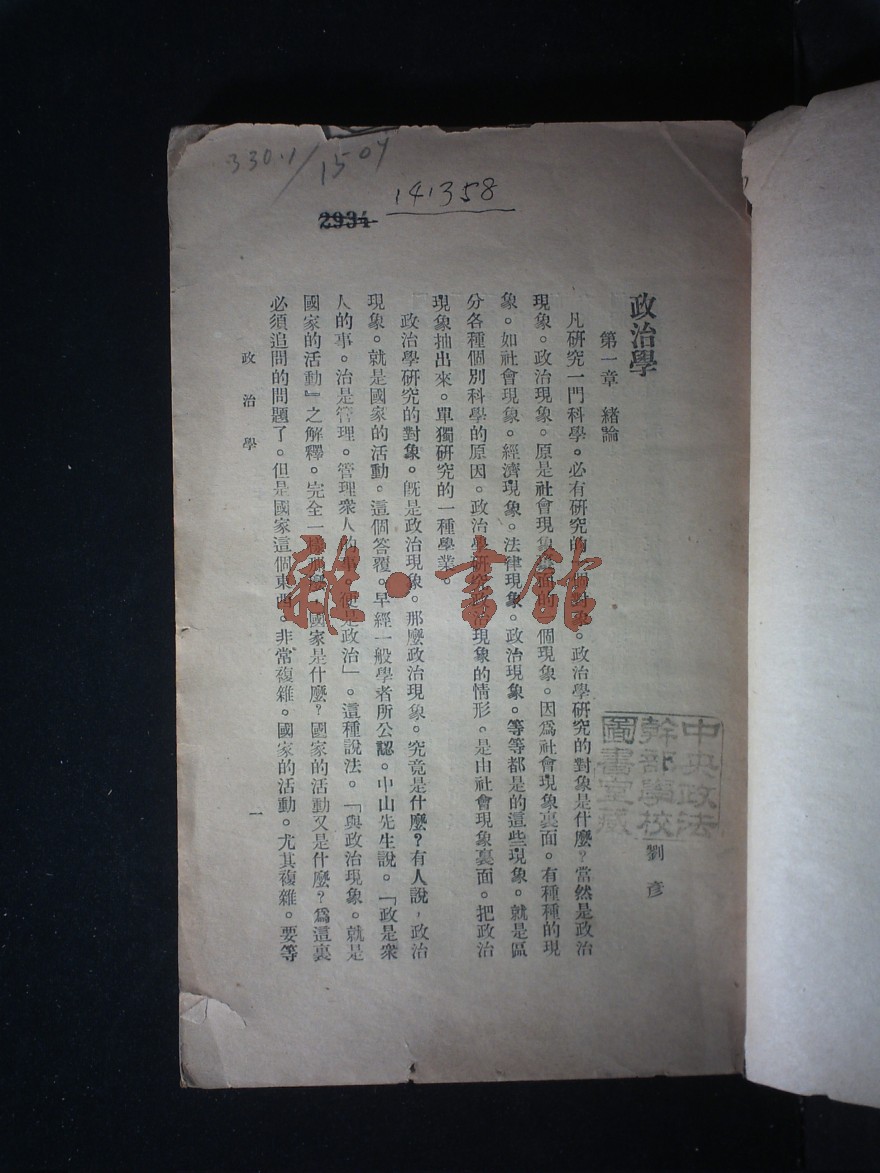 330.1/1504
141358
2934
政治學
劉彥
中央政法
幹部學校
圖書室藏
第一章 緒論
凡研究一門科學。必有研究的對象。政治學研究的對象是什麼?當然是政治
現象。政治現象。原是社會現象裏面的一個現象。因爲社會現象裏面。有種種的現
象。如社會現象。經濟現象。法律現象。政治現象。等等都是的這些現象。就是區
分各種個別科學的原因。政治學研究政治現象的情形。是由社會現象裏面。把政治
現象抽出來。單獨研究的一種學業
政治學研究的對象。旣是政治現象。那麼政治現象。究竟是什麼?有人說,政治
現象。就是國家的活動。這個答覆。早經一般學者所公認。中山先生說。「政是衆
人的事。治是管理。管理衆人的事。便是政治」。這種說法。「與政治現象。就是
國家的活動』之解釋。完全一樣那麼。國家是什麼?國家的活動又是什麼?爲這裏
必須追問的問題了。但是國家這個東西。非常複雜。國家的活動。尤其複雜。要等
政治學
一
雜·書館